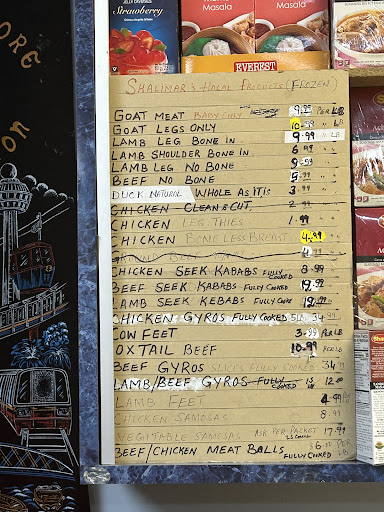 ORE
on
JELLY CRYSTALS
Strawberry
Masala
Masala
EVEREST
SHALIMAR'S HALAL PRODUCTS (FROZEN)
GOAT MEAT BABY ONLY 9.99 PER LB
GOAT LEGS ONLY 10.99 LB
LAMB LEG BONE IN 9.99 LB
LAMB SHOULDER BONE IN 6.99
LAMB LEG NO BONE
BEEF NO BONE
DUCK NATURAL WHOLE AS IT IS 3.99
CHICKEN CLEAN & CUT 2.99
CHICKEN LEG THIES 1.99
CHICKEN BONE LESS BREAST 4.99
CHICKEN SEEK KABABS FULLY COOKED 8.99
BEEF SEEK KABABS FULLY COOKED 12.99
LAMB SEEK KEBABS FULLY COOKE 12.99
CHICKEN GYROS FULLY COOKED 5LB 34.99
COW FEET 3.99 PER LB
OXTAIL BEEF 10.99 PER LB
BEEF GYROS SLICES FULLY COOKED 34.99
LAMB/BEEF GYROS FULLY COOKED 12.00
LAMB FEET 4.99 PER LB
CHICKEN SAMOSAS 8.99
VEGITABLE SAMOSAS ASK PER PACKET 17.99
BEEF/CHICKEN MEAT BALLS FULLY COOKED $6.00 PER LB